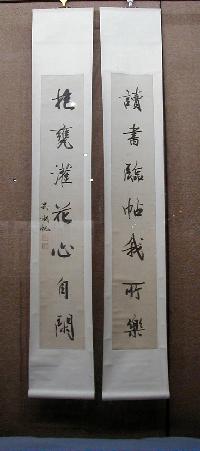 讀書臨帖我所樂
抱甕灌花心自閒